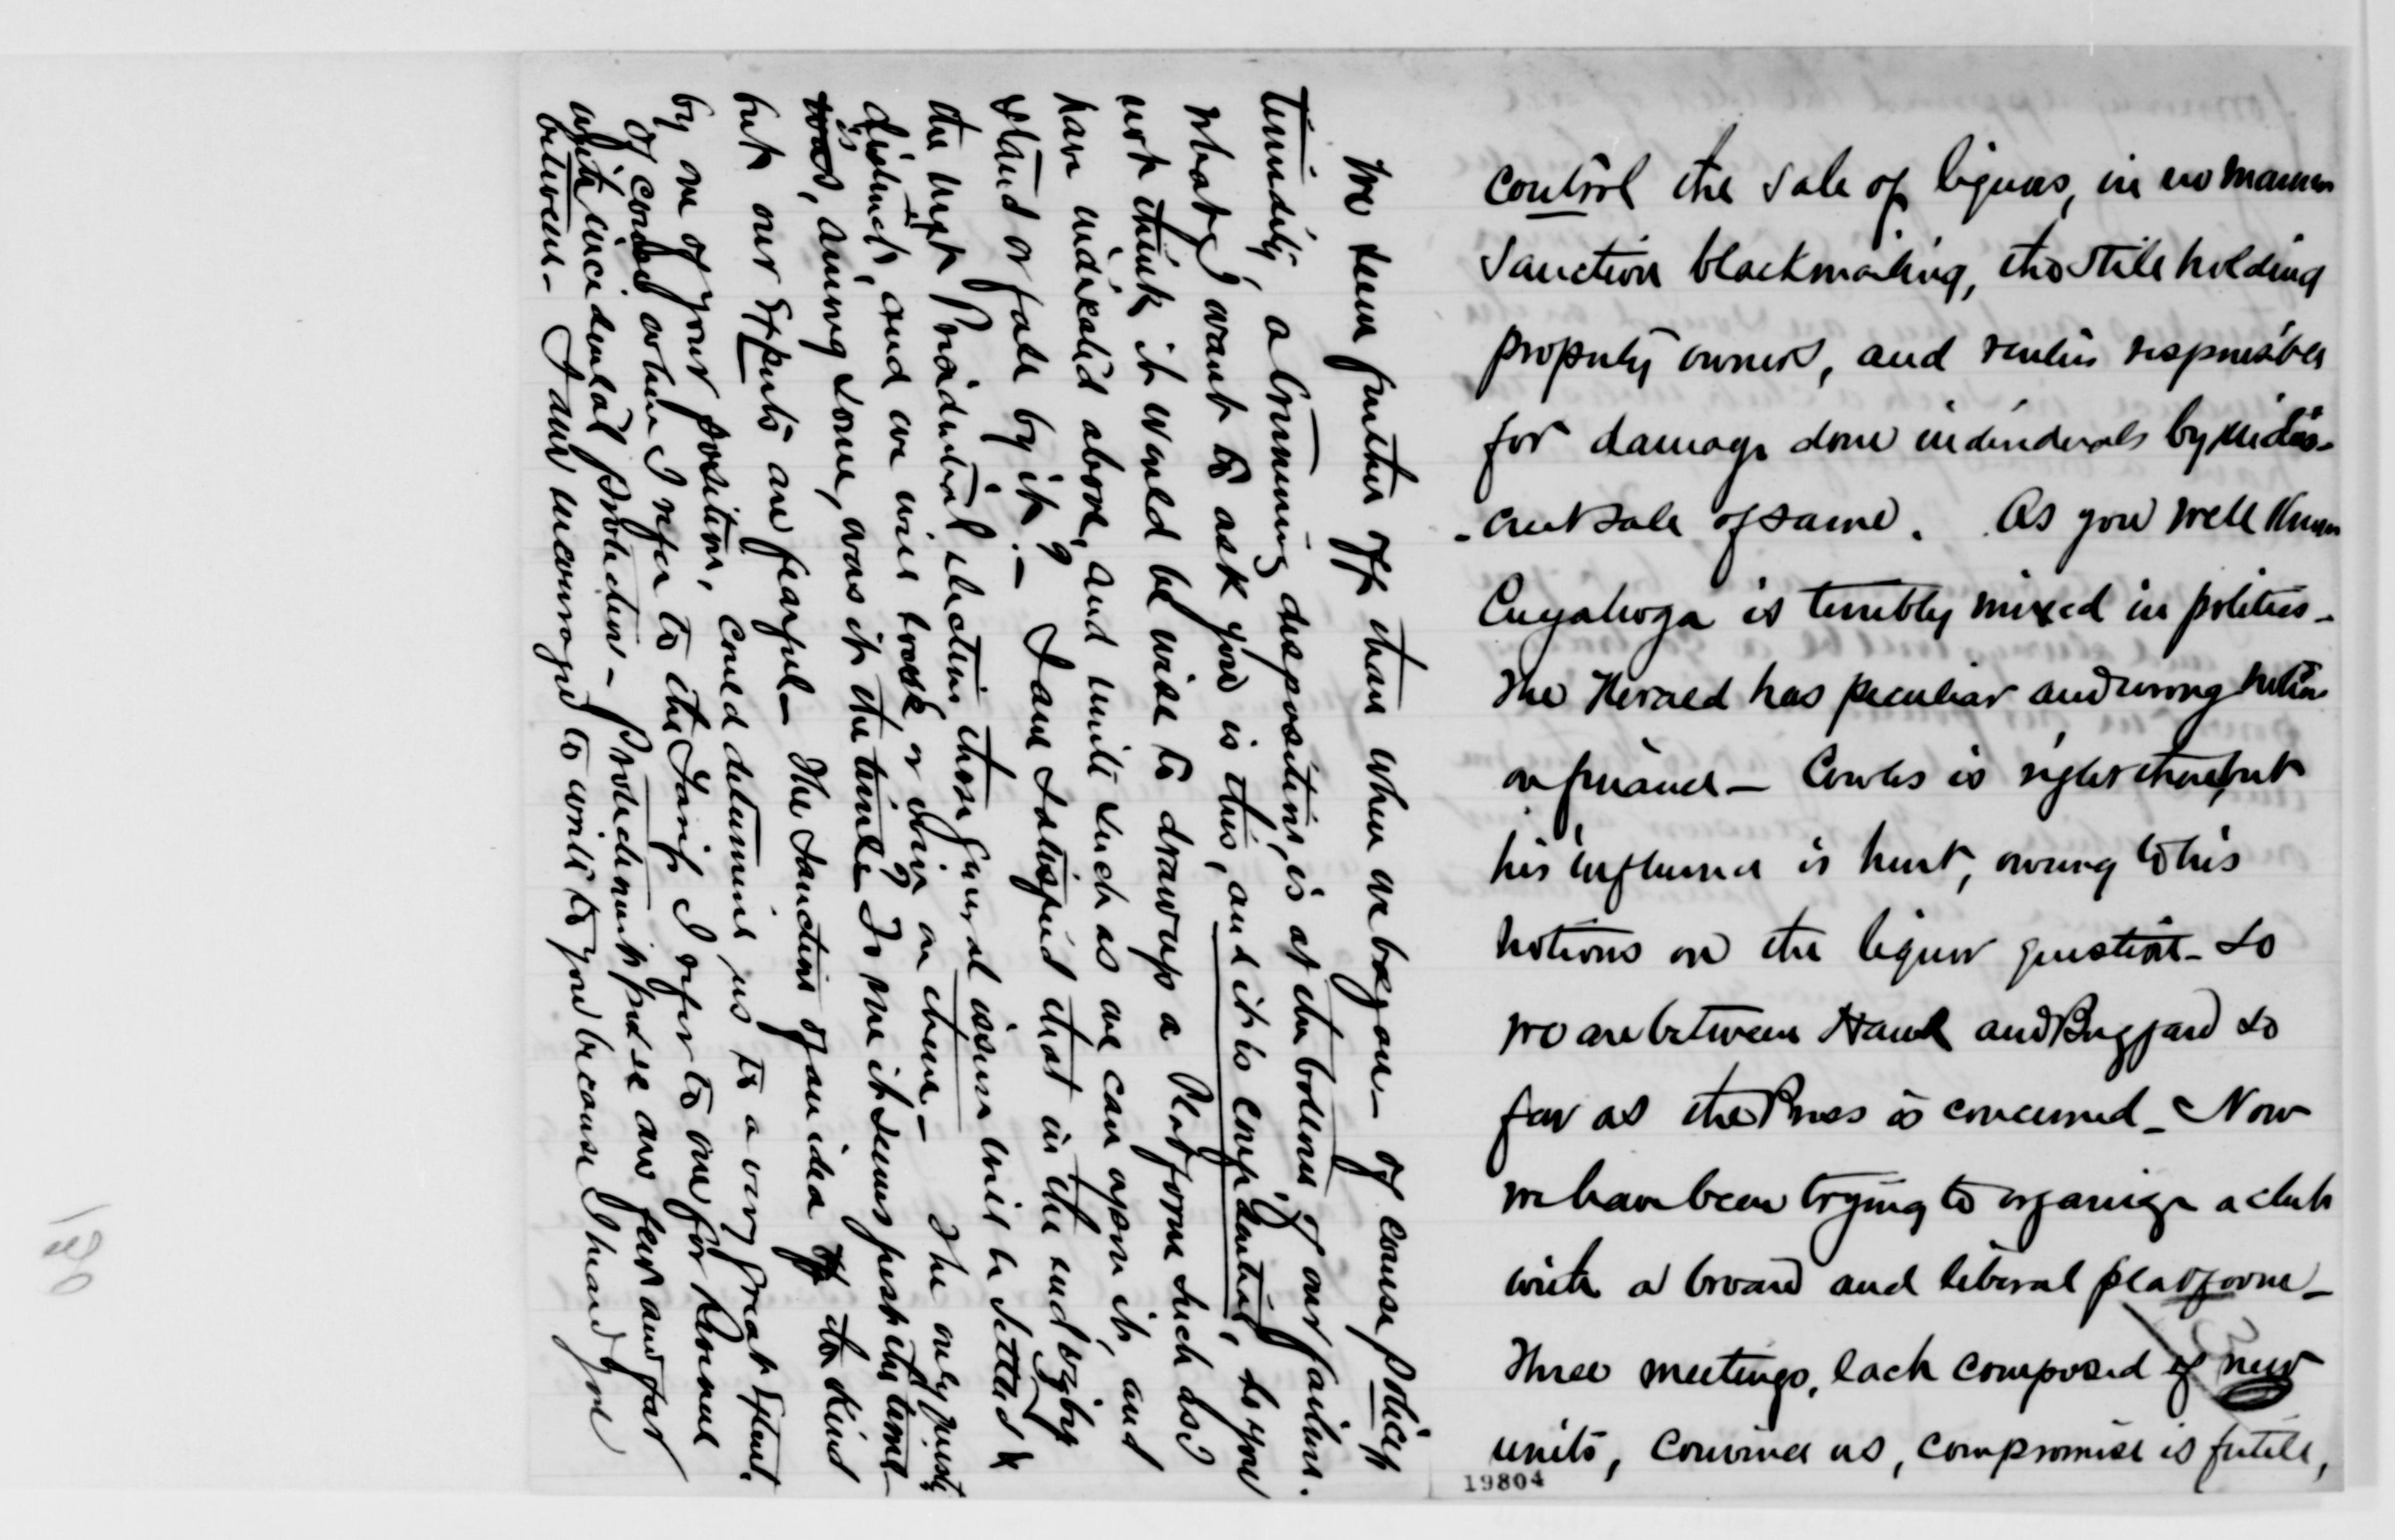 control the sale of liquors, in no manner
sanction blackmailing, tho still holding
property owners, and renters responsible
for damage done individuals by indis-
-creet sale of same. As you well know
Cuyahoga is terribly mixed in politics -
The Herald has peculiar and wrong notions
on finance - Cowles is right there, but
his influence is hurt, owing to his
notions on the liquor question - So
we are between Hawk and Buzzard so
far as the Press is concerned - Now
we have been trying to organize a club
with a broad and liberal platform -
Three meetings, each composed of new
units, convince us, compromise is futile,
19804
We seem further off than when we began - Of course policy
timidity, a trimming disposition, is at the bottom of our failure.
What I want to ask you is this, and it is confidential, do you
not think it would be wise to draw up a Platform such as I
have indicated above, and unite such as we can upon it, and
stand or fall by it? - I am satisfied that in the end by & by
the next Presidential election those general issues will be settled &
distinct, and we will break or win on them - The only quest.
is, among some, was it the time? To me it seems just the time -
but our Experts are fearful - The sanction of an idea of the kind
by one of your position, could determine us to a very great extent.
Of course when I refer to the Tariff I refer to one for Revenue
with incidental protection - Protection per se are few and far
between - I am encouraged to write to you because I heard you